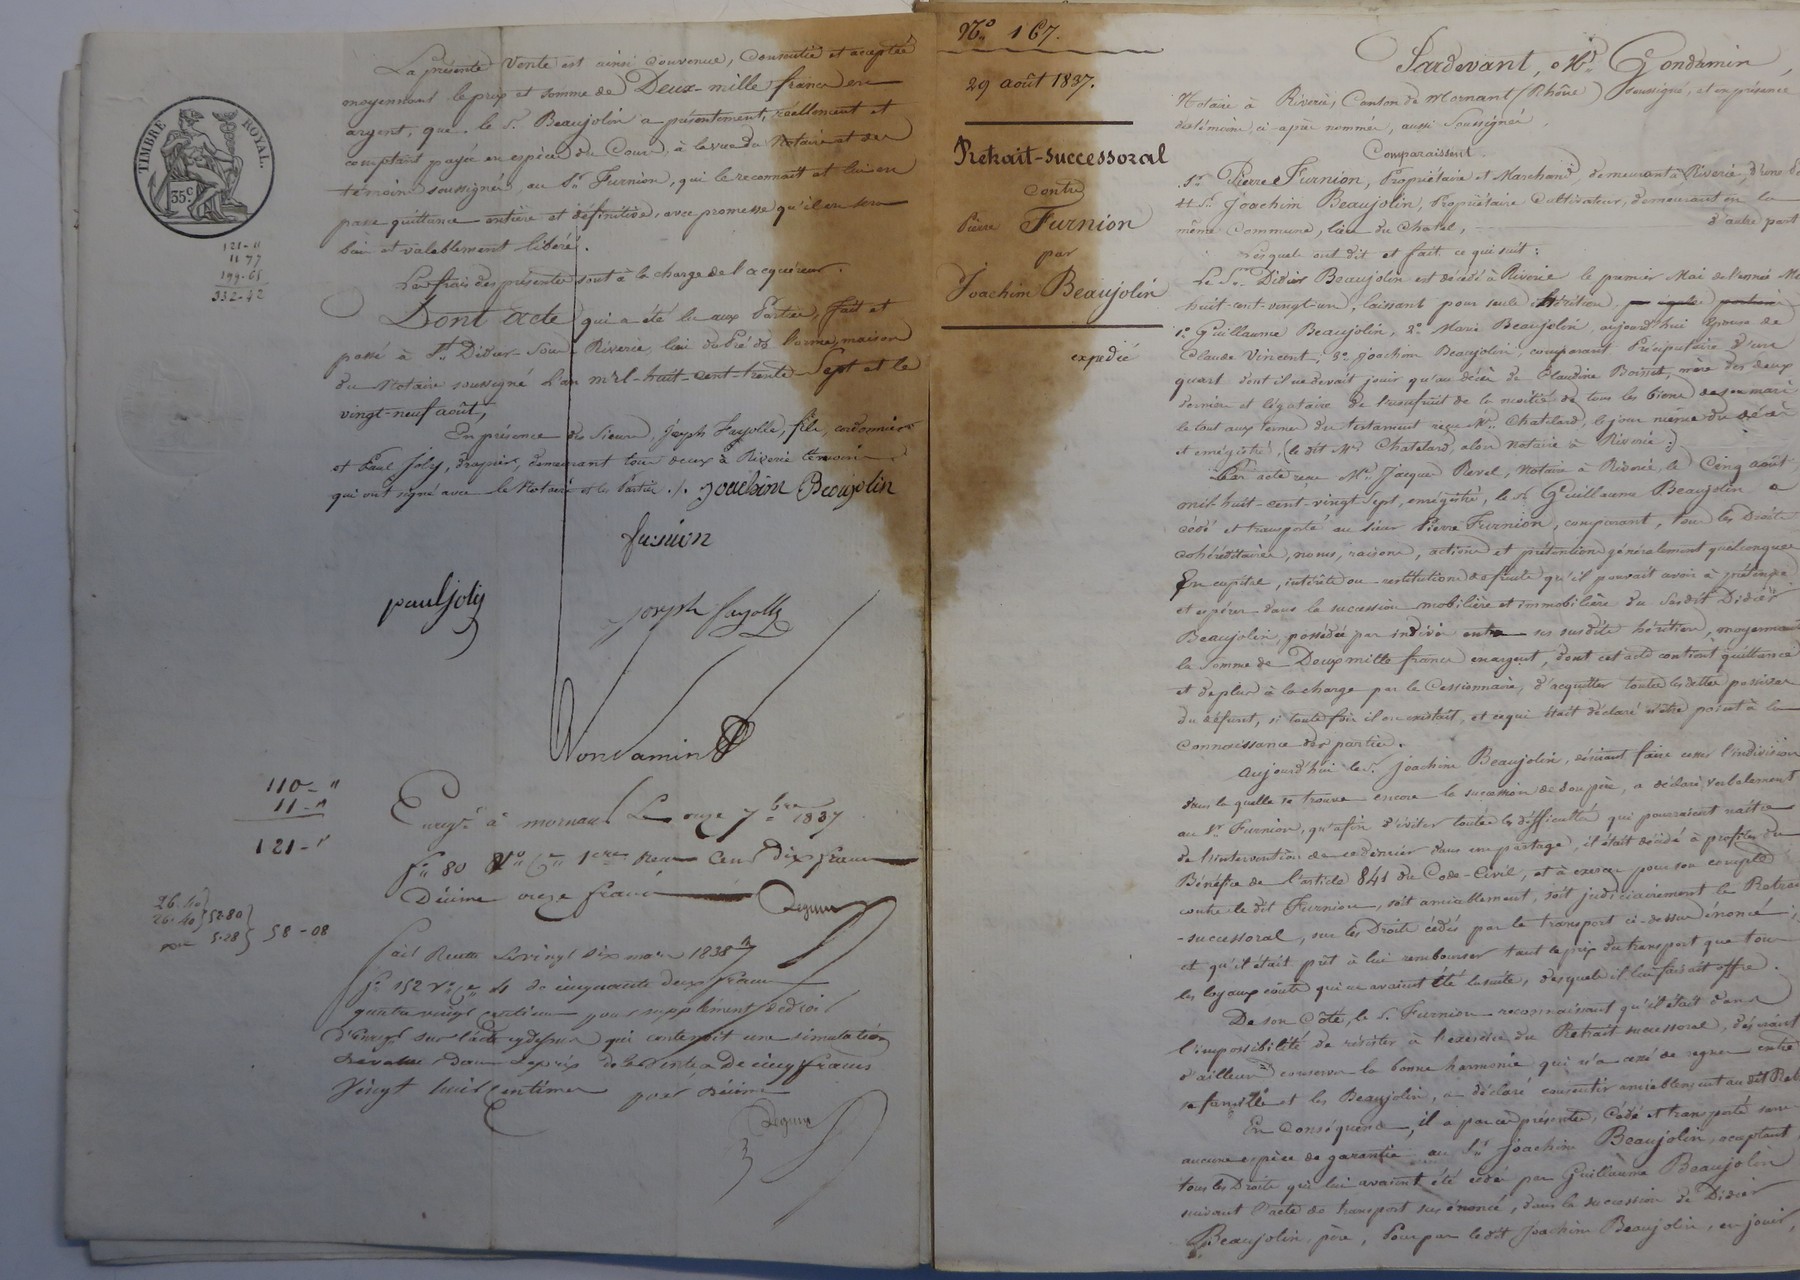 La présente Vente est ainsi convenue, consentie et acceptée
moyennant le prix et somme de Deux-mille francs en
argent, que le Sr. Beaujolin a présentement, réellement et
comptant payée en espèces du Cours, à la vue du Notaire et des
témoins soussignés, au Sr. Furnion, qui le reconnait et lui en
passe quittance entière et définitive, avec promesse qu'il en sera
bien et valablement libéré.
Les frais des présentes sont à la charge de l'acquéreur.
Dont Acte qui a été lu aux Parties, fait et
passé à St. Didier-Sous-Riverie, lieu du Pré de l'orme, maison
du Notaire soussigné l'an mil-huit-cent-trente-Sept et le
vingt-neuf août,
En présence des Sieurs, Joseph Fayolle, fils, cordonnier
et Paul Joly, drapier, demeurant tous deux à Riverie témoins
qui ont signé avec le Notaire et les Parties ./. Joachim Beaujolin
furnion
paul joly
joseph fayolle
Gondamin
Enregé. à mornant Le onze 7bre 1837
fo. 80 Ro. Ce. 1ere Reçu Cent Dix francs
Décime onze francs
Seguin
Fait Recette Le vingt six mars 1838
fo. 152 Vo. Ce. 4 de cinquante deux francs
quatre vingt centimes pour supplément de droit
d'Enregt sur l'acte cy dessus qui contenoit une simulation
dans le prix de la Vente de cinq francs
Vingt huit Centimes pour Décime
Seguin
TIMBRE ROYAL.
35c.
121-"
11 77
199-65
332-42
110-"
11-"
121-"
26.40
26.40 } 52.80
5.28 } 58-08
No. 167.
29 août 1837.
Retrait-successoral
contre
Pierre Furnion
par
Joachim Beaujolin
expédié
Pardevant, Me. Gondamin,
Notaire à Riverie, Canton de Mornant (Rhône) soussigné, et en présence
des témoins, ci-après nommés, aussi Soussignés,
Comparaissent.
Sr. Pierre Furnion, Propriétaire et Marchand, demeurant à Riverie, d'une
et Sr. Joachim Beaujolin, Propriétaire Cultivateur, demeurant en la
même Commune, lieu du Chatel, d'autre part
Lesquels ont dit et fait ce qui suit:
Le Sr. Didier Beaujolin est décédé à Riverie le premier Mai de l'année
huit-cent-vingt-un, laissant pour seuls héritiers
1o. Guillaume Beaujolin, 2o. Marie Beaujolin, aujourd'hui Epouse de
Claude Vincent, 3o. Joachim Beaujolin, comparant Préciputaire d'un
quart dont il ne devait jouir qu'au décès de Claudine Boisset, mère des deux
derniers et légataire de l'usufruit de la moitié de tous les biens de son mari
le tout aux termes du testament reçu Me. Chatelard, le jour même du décès
et enrégistré, (le dit Me. Chatelard, alors Notaire à Riverie:)
Par acte reçu Me. Jacques Revel, Notaire à Riverie, le Cinq août
mil-huit-cent-vingt-Sept, enrégistré, le Sr. Guillaume Beaujolin a
cédé et transporté au sieur Pierre Furnion, comparant, tous les Droits
cohéréditaires, noms, raisons, actions et prétentions généralement quelconques
En capital, intérêts ou restitutions de fruits qu'il pouvait avoir à prétendre
et espérer dans la succession mobilière et immobilière du Susdit Didier
Beaujolin, possédée par indivis entre ses susdits héritiers, moyennant
la Somme de Deux mille francs en argent, dont cet acte contient quittance
et de plus à la charge par le Cessionnaire, d'acquitter toutes les dettes passives
du défunt, si toute fois il en existait, et ce qui était déclaré n'être point à la
connaissance des parties.
Aujourd'hui le Sr. Joachim Beaujolin, désirant faire cesser l'indivision
dans laquelle se trouve encore la succession de son père, a déclaré verbalement
au Sr. Furnion, qu'afin d'éviter toutes les difficultés qui pourraient naître
de l'intervention de ce dernier dans un partage, il était décidé à profiter du
Bénéfice de l'article 841 du Code-Civil, et à exercer pour son compte
contre le dit Furnion, soit amiablement, soit judiciairement le Retrait
-successoral, sur les Droits cédés par le transport ci-dessus énoncé;
et qu'il était prêt à lui rembourser tant le prix du transport que tous
les loyaux coûts qui en avaient été la suite, desquels il lui faisait offre.
De son Côté, le Sr. Furnion reconnaissant qu'il était dans
l'impossibilité de résister à l'exercice du Retrait successoral, désirant
d'ailleurs conserver la bonne harmonie qui n'a cessé de regner entre
sa famille et les Beaujolin, a déclaré consentir amiablement au dit
En Conséquence, il a par ces présentes, Cédé et transporté sans
aucune espèce de garantie au Sr. Joachim Beaujolin, acceptant
tous les Droits qui lui avaient été cédés par Guillaume Beaujolin
suivant l'acte de transport sus énoncé, dans la succession de Didier
Beaujolin père, Pour par le dit Joachim Beaujolin, en jouir,